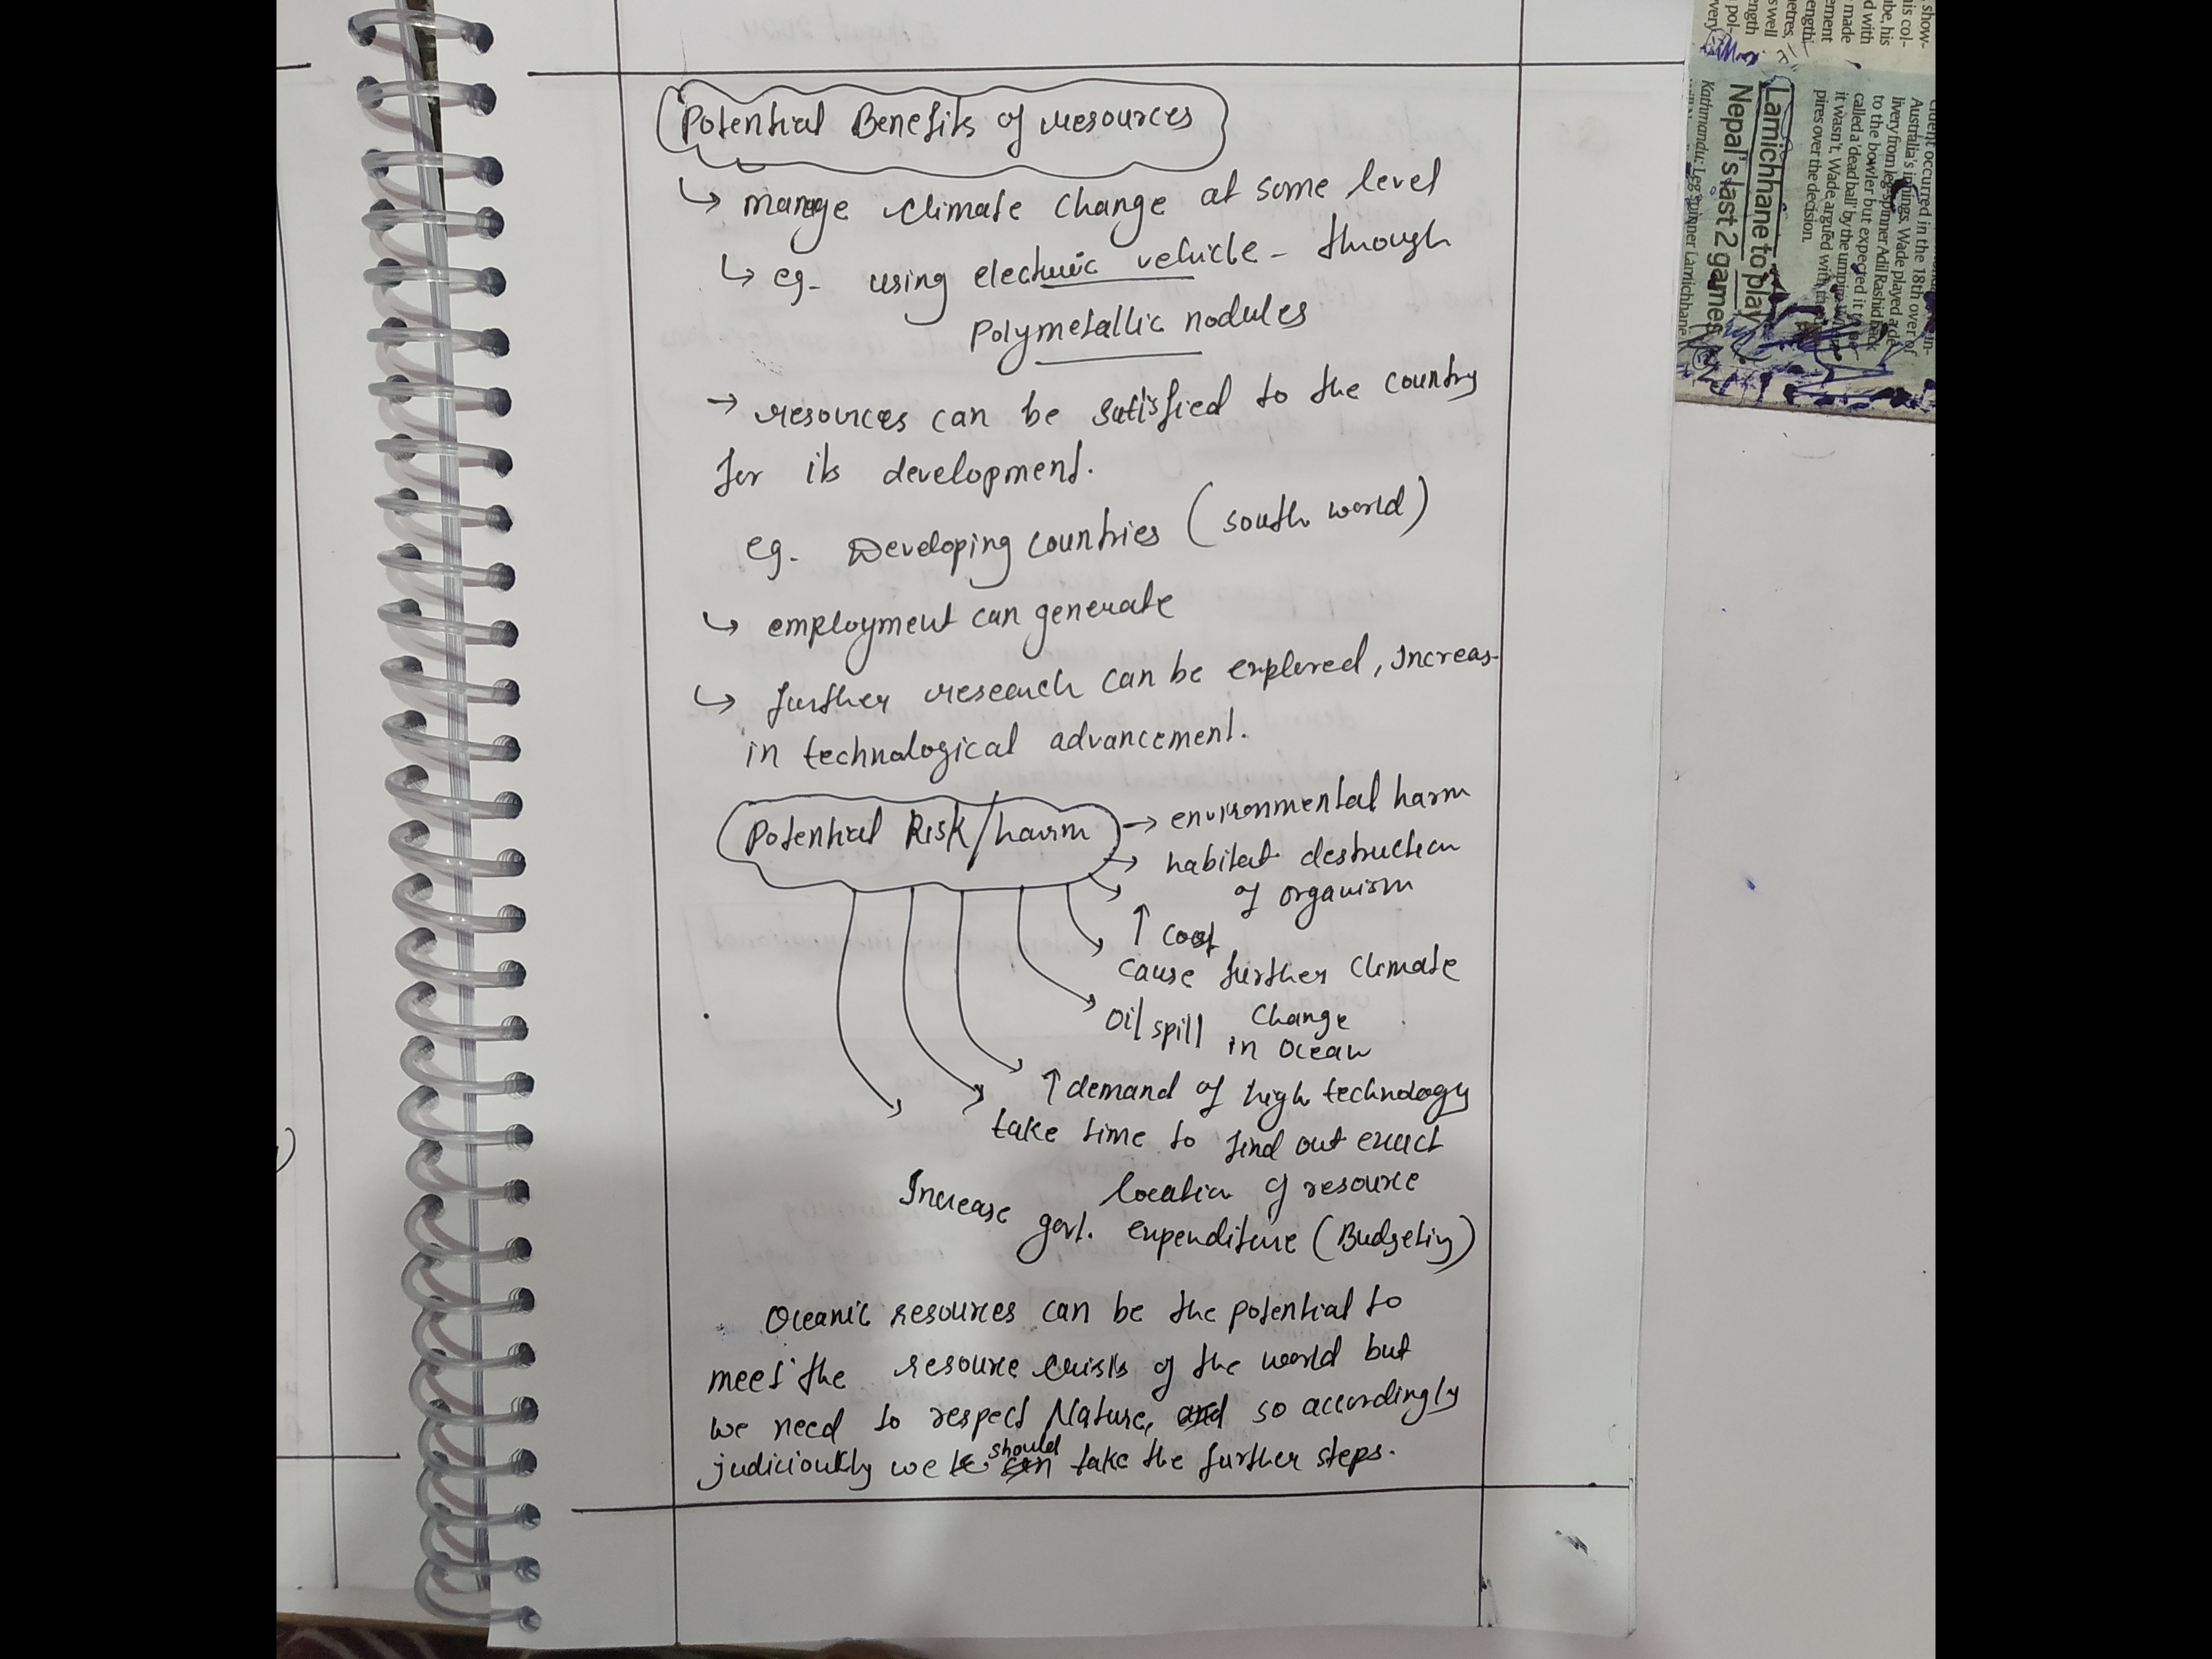 Potential Benefits of resources
↳ manage climate change at some level
↳ eg- using electric vehicle - through
polymetallic nodules
→ resources can be satisfied to the country
for its development.
eg. Developing countries (south world)
↳ employment can generate
↳ further research can be explored, Increas-
in technological advancement.
Potential Risk/harm
→ environmental harm
→ habitat destruction
of organism
↑ cost
cause further climate
change
oil spill in ocean
↑ demand of high technology
take time to find out exact
location of resource
Increase govt. expenditure (Budgeting)
Oceanic resources can be the potential to
meet the resource crisis of the world but
we need to respect Nature, so accordingly
judiciously we should take the further steps.
Lamichhane to play
Nepal's last 2 games
Kathmandu: Leg-spinner Lamichhane
occurred in the 18th over of
Australia's innings. Wade played a de-
livery from leg-spinner Adil Rashid back
to the bowler but expected it to be
called a 'dead ball' by the umpire. When
it wasn't, Wade argued with
pires over the decision.